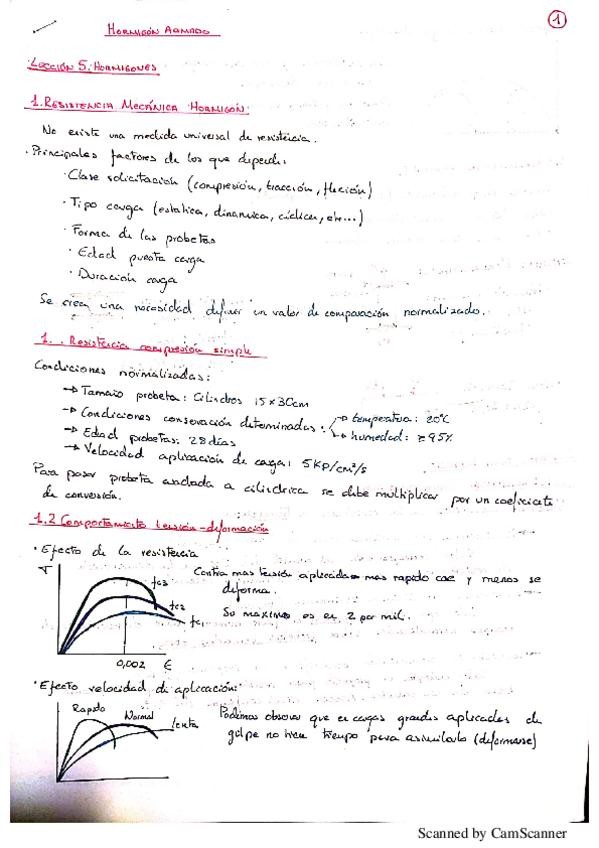 1
HORMIGÓN ARMADO
LECCIÓN 5: HORMIGONES
1. RESISTENCIA MECÁNICA HORMIGÓN:
No existe una medida universal de resistencia.
· Principales factores de los que depende:
· Clase solicitación (compresión, tracción, flexión)
· Tipo carga (estatica, dinamica, cíclica, etc...)
· Forma de las probetas
· Edad puesta carga
· Duración carga
Se crea una necesidad definir un valor de comparación normalizado.
1. . Resistencia compresión simple
Condiciones normalizadas:
→ Tamaño probeta: Cilindros 15x30cm
→ Condiciones conservación determinadas: → temperatura: 20°C
→ humedad: ≥95%
→ Edad probetas: 28 días
→ Velocidad aplicación de carga: 5KP/cm²/s
Para pasar probeta a cilíndrica se debe multiplicar por un coeficiente
de conversión.
1.2 Comportamiento tensión-deformación
· Efecto de la resistencia
fc3
fc2
fc1
0,002 ε
mas tensión aplicada mas rapido cae y menos se
deforma.
Su maximo es en 2 por mil.
· Efecto velocidad de aplicación:
Rapido
Normal
lenta
Podemos observar que en cargas grandes aplicadas de
golpe no tiempo para asimilarlo (deformarse)
Scanned by CamScanner